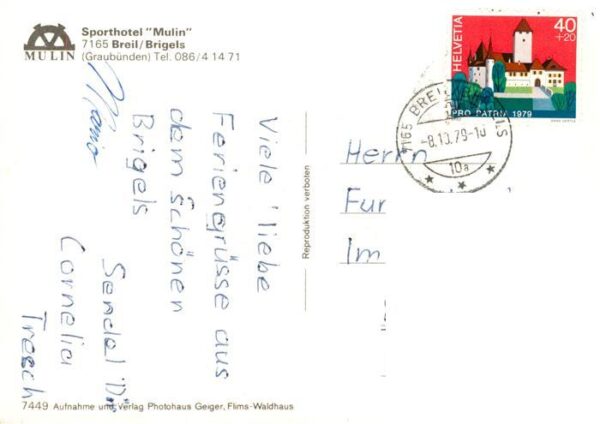 Sporthotel "Mulin"
7165 Breil/Brigels
MULIN (Graubünden) Tel. 086/4 14 71
Viele liebe
Feriengrüsse aus
dem schönen
Brigels
Sendet Dir
Cornelia
Tresch
7449 Aufnahme und Verlag Photohaus Geiger, Flims-Waldhaus
Reproduktion verboten
HELVETIA
40
+20
PRO PATRIA 1979
7165 BREIL
-8.10.79-10
10a
Herrn
Fur
Im